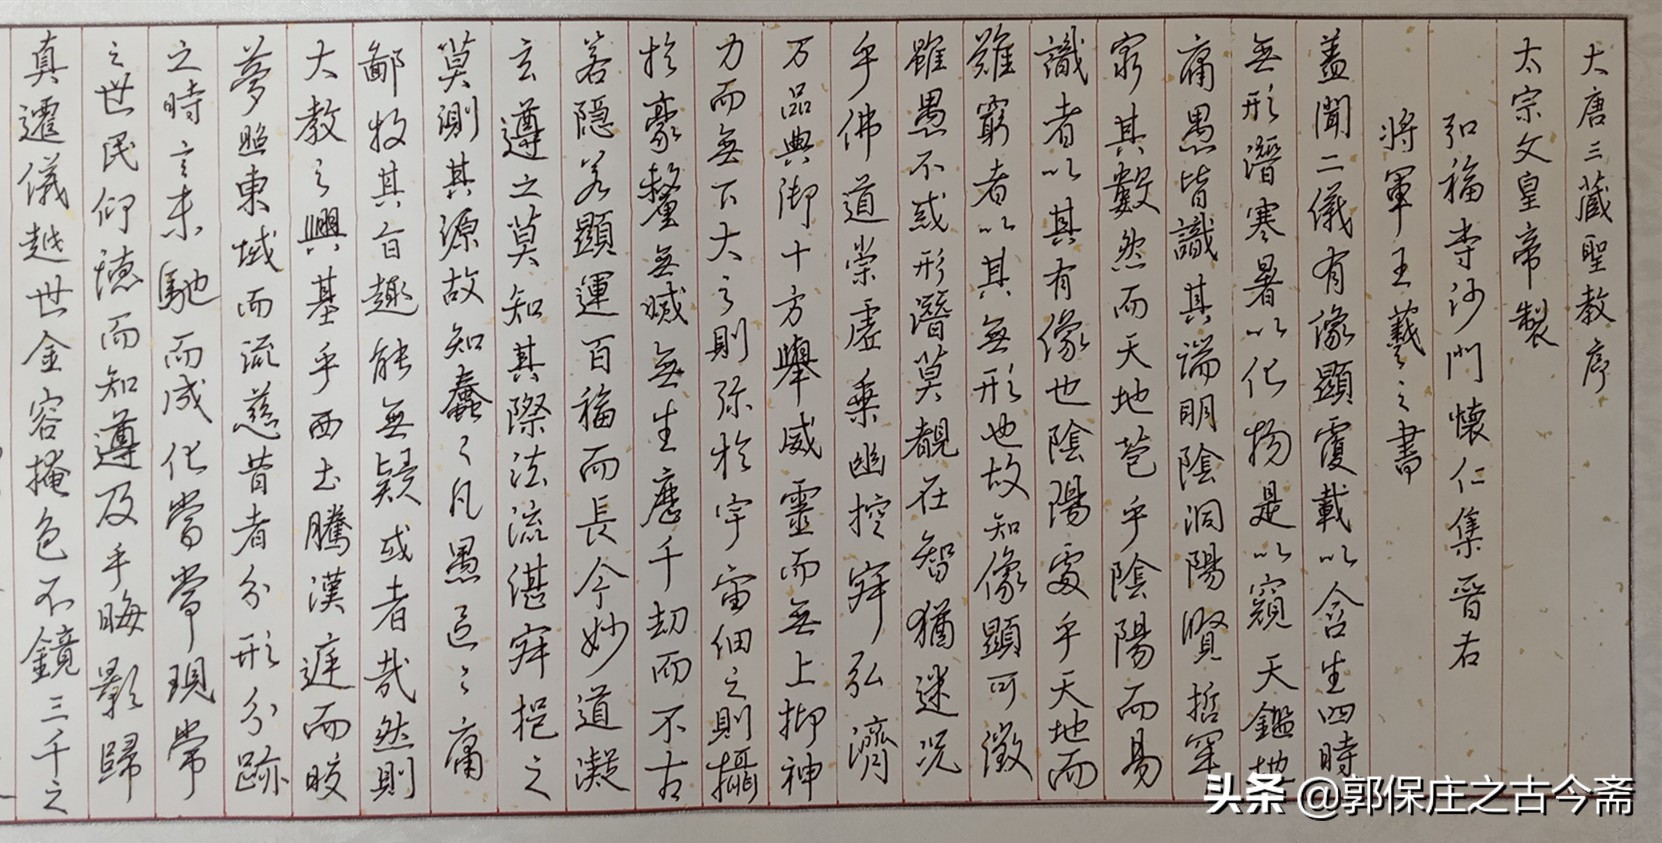 大唐三藏聖教序
太宗文皇帝製
弘福寺沙門懷仁集晉右
將軍王羲之書
蓋聞二儀有像顯覆載以含生四時
無形潛寒暑以化物是以窺天鑑地
庸愚皆識其端明陰洞陽賢哲罕
窮其數然而天地苞乎陰陽而易
識者以其有像也陰陽處乎天地而
難窮者以其無形也故知像顯可徵
雖愚不惑形潛莫覩在智猶迷况
乎佛道崇虛乘幽控寂弘濟
万品典御十方舉威靈而無上抑神
力而無下大之則弥於宇宙細之則攝
於豪釐無滅無生歷千劫而不古
若隱若顯運百福而長今妙道凝
玄遵之莫知其際法流湛寂挹之
莫測其源故知蠢々凡愚區々庸
鄙投其旨趣能無疑或者哉然則
大教之興基乎西土騰漢庭而皎
夢照東域而流慈昔者分形分跡
之時言未馳而成化當常現常
之世民仰德而知遵及乎晦影歸
真遷儀越世金容掩色不鏡三千之
头条 @郭保庄之古今斋